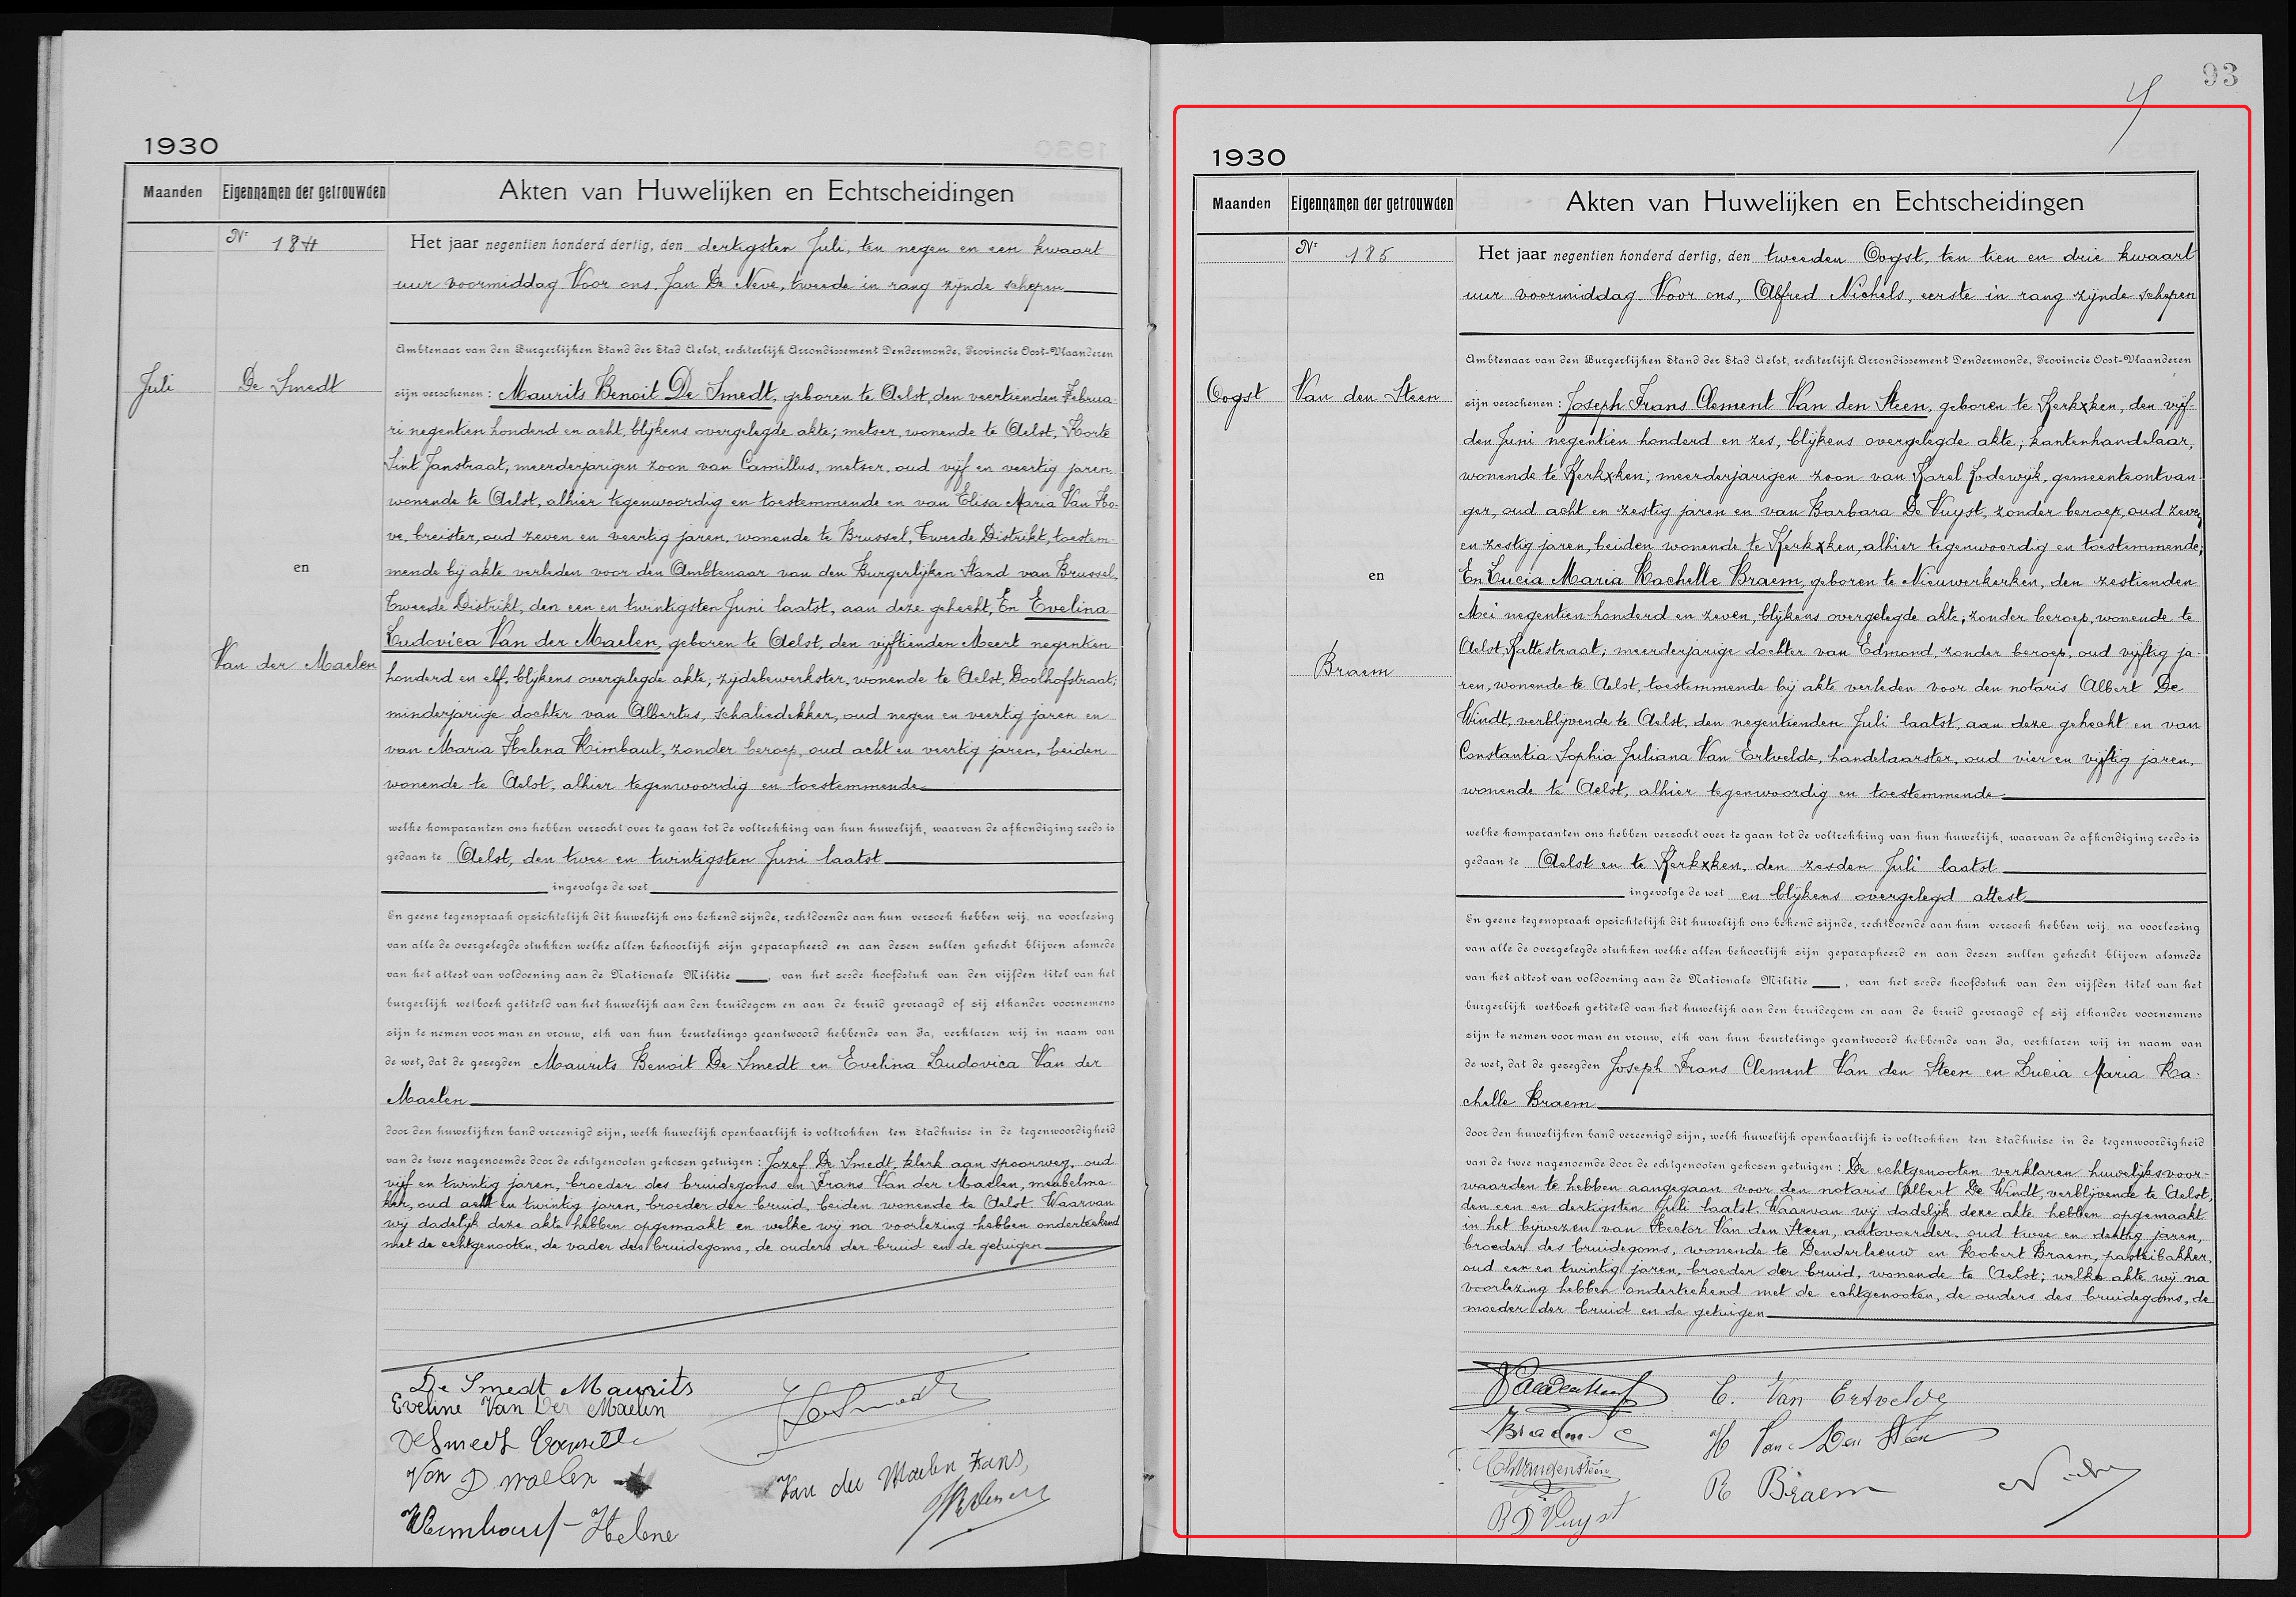 1930
Maanden
Eigennamen der getrouwden
Akten van Huwelijken en Echtscheidingen
Nr 184
Het jaar negentien honderd dertig, den dertigsten Juli, ten negen en een kwaart
uur voormiddag Voor ons, Jan De Neve, tweede in rang zijnde schepen
Ambtenaar van den Burgerlijken Stand der Stad Aelst, rechterlijk Arrondissement Dendermonde, Provincie Oost-Vlaanderen
Juli
De Smedt
zijn verschenen: Maurits Benoit De Smedt, geboren te Aelst, den veertienden Februa-
ri negentien honderd en acht, blijkens overgelegde akte; metser, wonende te Aelst, Korte
Sint Janstraat, meerderjarigen zoon van Camillus, metser, oud vijf en veertig jaren,
wonende te Aelst, alhier tegenwoordig en toestemmende en van Elisa Maria Van Ho-
ve, breister, oud zeven en veertig jaren, wonende te Brussel, Tweede Distrikt, toestem-
en
mende bij akte verleden voor den Ambtenaar van den Burgerlijken Stand van Brussel,
Tweede Distrikt, den een en twintigsten Juni laatst, aan deze gehecht, En Evelina
Ludovica Van der Maelen, geboren te Aelst, den vijftienden Meert negentien
Van der Maelen
honderd en elf, blijkens overgelegde akte, zijdebewerkster, wonende te Aelst, Doolhofstraat;
minderjarige dochter van Albertus, schaliedekker, oud negen en veertig jaren en
van Maria Helena Rimbaut, zonder beroep, oud acht en veertig jaren, beiden
wonende te Aelst, alhier tegenwoordig en toestemmende
welke komparanten ons hebben verzocht over te gaan tot de voltrekking van hun huwelijk, waarvan de afkondiging reeds is
gedaan te Aelst, den twee en twintigsten Juni laatst
ingevolge de wet
En geene tegenspraak opzichtelijk dit huwelijk ons bekend zijnde, rechtdoende aan hun verzoek hebben wij, na voorlezing
van alle de overgelegde stukken welke allen behoorlijk zijn geparapheerd en aan dezen zullen gehecht blijven alsmede
van het attest van voldoening aan de Nationale Militie, van het zesde hoofdstuk van den vijfden titel van het
burgerlijk wetboek getiteld van het huwelijk aan den bruidegom en aan de bruid gevraagd of zij elkander voornemens
zijn te nemen voor man en vrouw, elk van hun beurtelings geantwoord hebbende van Ja, verklaren wij in naam van
de wet, dat de gezegden Maurits Benoit De Smedt en Evelina Ludovica Van der
Maelen
door den huwelijken band vereenigd zijn, welk huwelijk openbaarlijk is voltrokken ten Stadhuize in de tegenwoordigheid
van de twee nagenoemde door de echtgenooten gekozen getuigen: Jozef De Smedt, klerk aan spoorweg, oud
vijf en twintig jaren, broeder des bruidegoms en Frans Van der Maelen, meubelma-
ker, oud acht en twintig jaren, broeder der bruid, beiden wonende te Aelst. Waarvan
wij dadelijk deze akte hebben opgemaakt en welke wij na voorlezing hebben onderteekend
met de echtgenooten, de vader des bruidegoms, de ouders der bruid en de getuigen
De Smedt Maurits
Eveline Van Der Maelen
DeSmedt
Van D maelen
Helene
Van der Maelen Frans,
93
1930
Maanden
Eigennamen der getrouwden
Akten van Huwelijken en Echtscheidingen
Nr 185
Het jaar negentien honderd dertig, den tweeden Oogst, ten tien en drie kwaart
uur voormiddag Voor ons, Alfred Nichels, eerste in rang zijnde schepen
Ambtenaar van den Burgerlijken Stand der Stad Aelst, rechterlijk Arrondissement Dendermonde, Provincie Oost-Vlaanderen
Oogst
Van den Steen
zijn verschenen: Joseph Frans Clement Van den Steen, geboren te Kerkxken, den vijf-
den Juni negentien honderd en zes, blijkens overgelegde akte; kantenhandelaar,
wonende te Kerkxken; meerderjarigen zoon van Karel Lodewijk, gemeenteontvan-
ger, oud acht en zestig jaren en van Barbara De Vuyst, zonder beroep, oud zeven
en zestig jaren, beiden wonende te Kerkxken, alhier tegenwoordig en toestemmende;
en
En Lucia Maria Rachelle Braem, geboren te Nieuwerkerken, den zestienden
Mei negentien honderd en zeven, blijkens overgelegde akte; zonder beroep, wonende te
Aelst, Kattestraat; meerderjarige dochter van Edmond, zonder beroep, oud vijftig ja-
Braem
ren, wonende te Aelst, toestemmende bij akte verleden voor den notaris Albert De
Windt, verblijvende te Aelst, den negentienden Juli laatst, aan deze gehecht en van
Constantia Sophia Juliana Van Ertvelde, handelaarster, oud vier en vijftig jaren,
wonende te Aelst, alhier tegenwoordig en toestemmende
welke komparanten ons hebben verzocht over te gaan tot de voltrekking van hun huwelijk, waarvan de afkondiging reeds is
gedaan te Aelst en te Kerkxken, den zesden Juli laatst
ingevolge de wet en blijkens overgelegd attest
En geene tegenspraak opzichtelijk dit huwelijk ons bekend zijnde, rechtdoende aan hun verzoek hebben wij, na voorlezing
van alle de overgelegde stukken welke allen behoorlijk zijn geparapheerd en aan dezen zullen gehecht blijven alsmede
van het attest van voldoening aan de Nationale Militie, van het zesde hoofdstuk van den vijfden titel van het
burgerlijk wetboek getiteld van het huwelijk aan den bruidegom en aan de bruid gevraagd of zij elkander voornemens
zijn te nemen voor man en vrouw, elk van hun beurtelings geantwoord hebbende van Ja, verklaren wij in naam van
de wet, dat de gezegden Joseph Frans Clement Van den Steen en Lucia Maria Ra-
chelle Braem
door den huwelijken band vereenigd zijn, welk huwelijk openbaarlijk is voltrokken ten Stadhuize in de tegenwoordigheid
van de twee nagenoemde door de echtgenooten gekozen getuigen: De echtgenooten verklaren huwelijksvoor-
waarden te hebben aangegaan voor den notaris Albert De Windt, verblijvende te Aelst,
den een en dertigsten Juli laatst. Waarvan wij dadelijk deze akte hebben opgemaakt
in het bijwezen van Hector Van den Steen, autovoerder, oud twee en dertig jaren,
broeder des bruidegoms, wonende te Denderleeuw en Robert Braem, pasteibakker,
oud een en twintig jaren, broeder der bruid, wonende te Aelst; welke akte wij na
voorlezing hebben onderteekend met de echtgenooten, de ouders des bruidegoms, de
moeder der bruid en de getuigen
C. Van Ertvelde
Braem
H Van Den Steen
R Braem
B D Vuyst